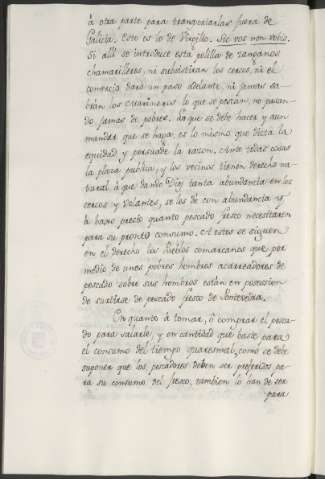 à otra parte para trampearlas fuera de
Galicia. Este es lo de Virgilio. Sic vos non vobis.
Si allì se introduce esta polilla de zanganos
chamarilleros, ni subsistiran los cercos, ni el
comercio darà un paso adelante, ni jamas sa-
bràn los Marineros lo que se pescan, no pasan-
do jamas de pobres. Lo que se debe hacer y aun
mandar que se haga es lo mismo que dicta la
equidad y persuade la razon. Ante todas cosas
la plaza publica, y los vecinos tienen derecho na-
tural à que dando Dios tanta abundancia en los
cercos y volantes, se les dè con abundancia y
à baxo precio quanto pescado fresco necesitaren
para su pronto consumo. A estos se siguen
en el derecho los Pueblos comarcanos que por
medio de unos pobres hombres acarreadores de
pescado sobre sus hombros estàn en posesion
de surtirse de pescado fresco de Pontevedra.
En quanto à tomar, ò comprar el pesca-
do para salarle, y en cantidad que baste para
el consumo del tiempo quaresmal, como se debe
suponer que los pescadores deben ser preferidos pa-
ra su consumo del fresco, tambien lo han de ser
para